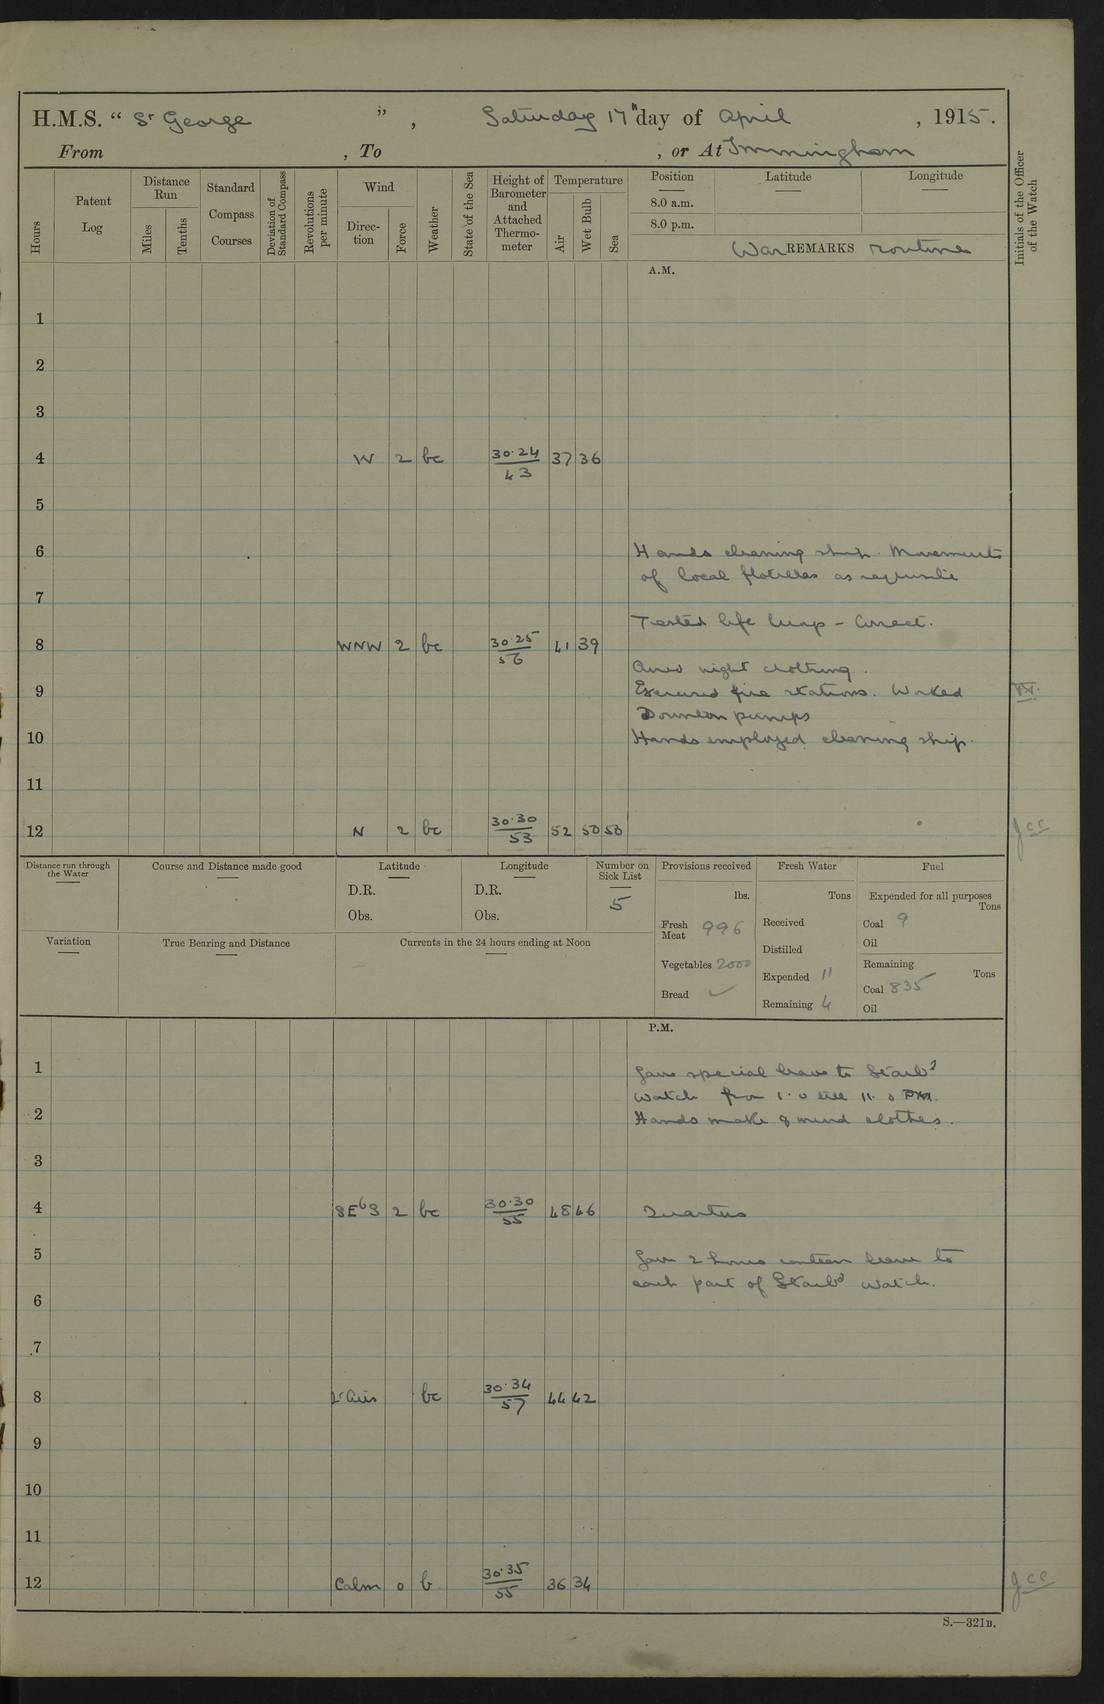 H.M.S. “ St George ” , Saturday 17th day of April , 1915.
From , To , or At Immingham
Hours
Patent Log
Distance Run
Miles
Tenths
Standard Compass Courses
Deviation of Standard Compass
Revolutions per minute
Wind
Direc-tion
Force
Weather
State of the Sea
Height of Barometer and Attached Thermo-meter
Temperature
Air
Wet Bulb
Sea
Position
Latitude
Longitude
8.0 a.m.
8.0 p.m.
War REMARKS routine
Initials of the Officer of the Watch
A.M.
1
2
3
4 W 2 bc 30.24 / 43 37 36
5
6 Hands cleaning ship. Movements
of local flotillas as requisite
7
Tested life buoys - Correct.
8 WNW 2 bc 30.25 / 56 41 39
Aired night clothing.
9 Exercised fire stations. Worked
Downton pumps
10 Hands employed cleaning ship.
11
12 N 2 bc 30.30 / 53 52 50 50 jcc
Distance run through the Water
Course and Distance made good
Latitude
D.R.
Obs.
Longitude
D.R.
Obs.
Number on Sick List
5
Provisions received
lbs.
Fresh Meat 996
Vegetables 2000
Bread ✓
Fresh Water
Tons
Received
Distilled
Expended 11
Remaining 4
Fuel
Expended for all purposes
Tons
Coal 9
Oil
Remaining
Tons
Coal 835
Oil
Variation
True Bearing and Distance
Currents in the 24 hours ending at Noon
P.M.
1 Gave special leave to Starbd
watch from 1.0 till 11.0 PM.
2 Hands make & mend clothes.
3
4 SEbS 2 bc 30.30 / 55 48 46 Quarters
5 Gave 2 hours canteen leave to
each part of Starbd watch.
6
7
8 Lt airs bc 30.34 / 57 44 42
9
10
11
12 Calm 0 b 30.35 / 55 36 34 jcc
S.—321B.